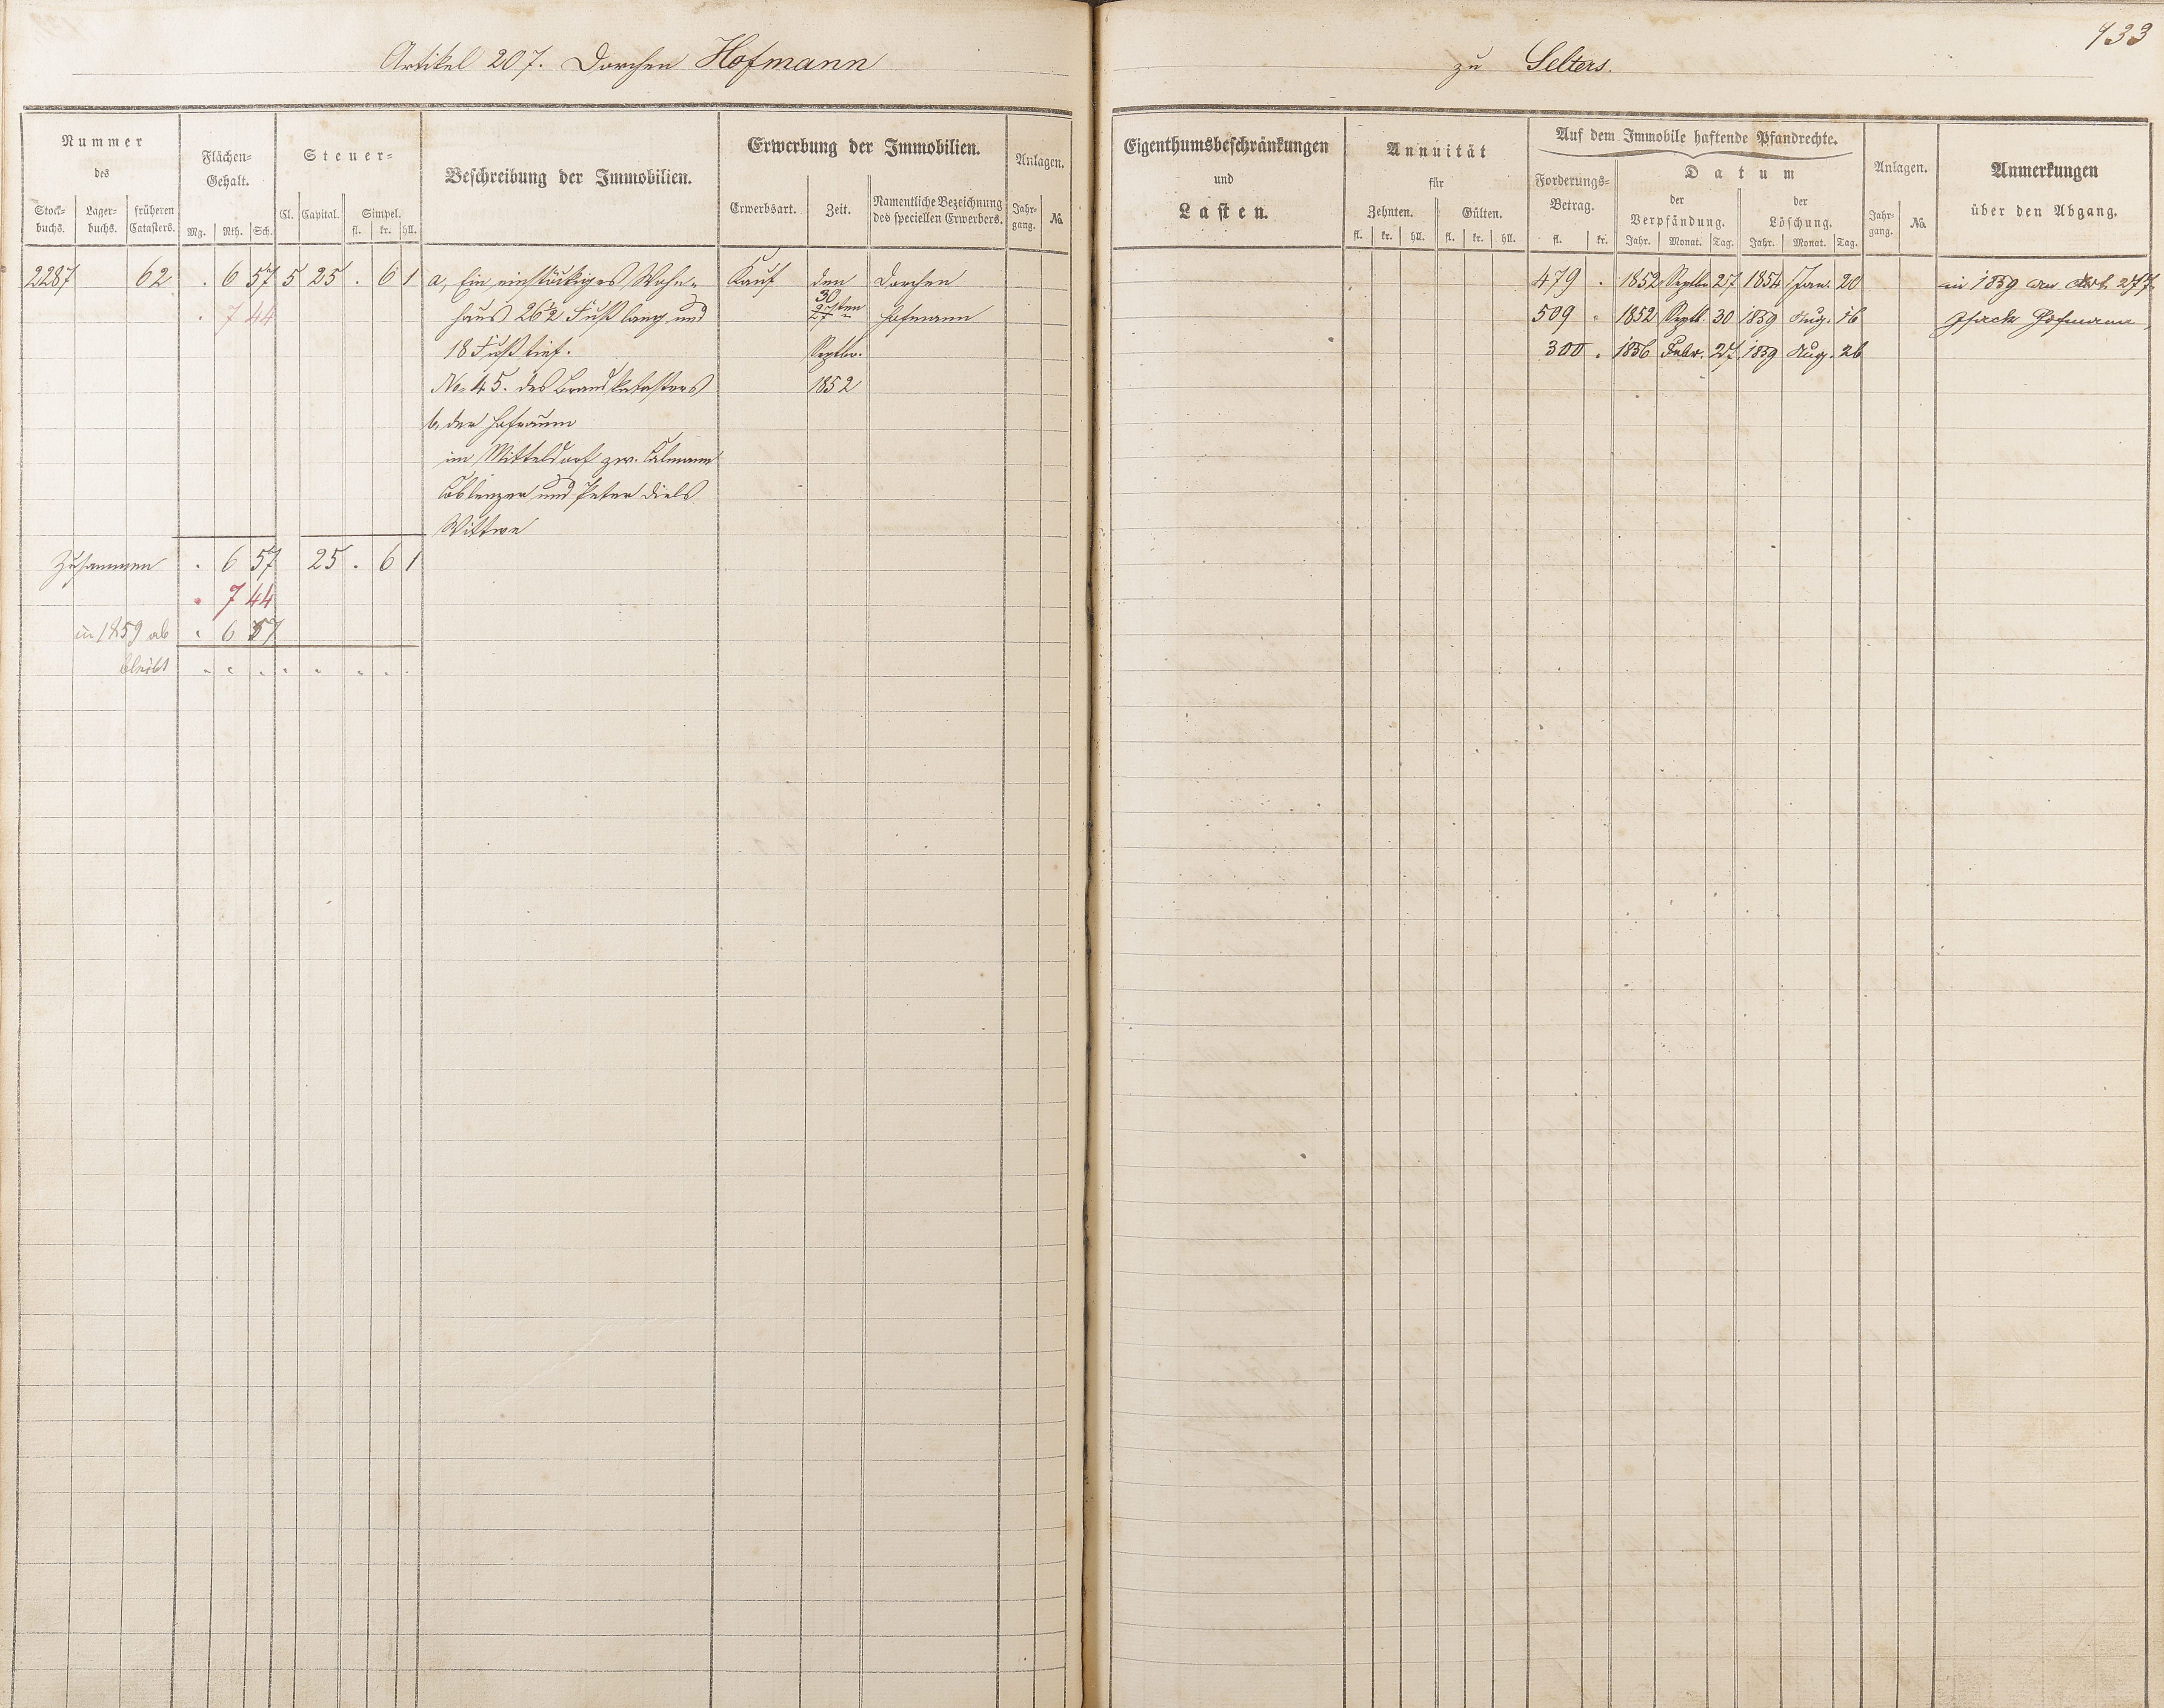 133
Artikel 207. Dorchen Hofmann
zu Selters.
Nummer
des
Stock-
buchs.
Lager-
buchs.
früheren
Catasters.
Flächen-
Gehalt.
Mg. Rth. Sch.
Steuer-
Cl. Capital. Simpel.
fl. kr. hll.
Beschreibung der Immobilien.
Erwerbung der Immobilien.
Erwerbsart. Zeit.
Namentliche Bezeichnung
des speciellen Erwerbers.
Anlagen.
Jahr-
gang.
No.
Eigenthumsbeschränkungen
und
Lasten.
Annuität
für
Zehnten. Gülten.
fl. kr. hll. fl. kr. hll.
Auf dem Immobile haftende Pfandrechte.
Forderungs-
Betrag.
fl. kr.
Datum
der
Verpfändung.
der
Löschung.
Jahr. Monat. Tag. Jahr. Monat. Tag.
Anlagen.
Jahr-
gang.
No.
Anmerkungen
über den Abgang.
2287 62 . 6 57 5 25 . 6 1 a, Ein einstöckiges Wohn- Kauf den Dorchen
. 7 44 haus 26½ Fuß lang und 30
27sten Hofmann
18 Fuß tief. Septbr.
No 45. des Brandkatasters 1852
b, der Hofraum
im Mitteldorf zw. Calmann
Coblenzer und Peter Diels
Wittwe
Zusammen . 6 57 25 . 6 1
. 7 44
in 1859 ab . 6 57
bleibt
479 . 1852 Septbr 27 1854 Jan. 20 in 1859 an Art. 277.
509 . 1852 Septb. 30 1859 Aug. 16 Hofmann
300 . 1856 Febr. 27. 1859 Aug. 26